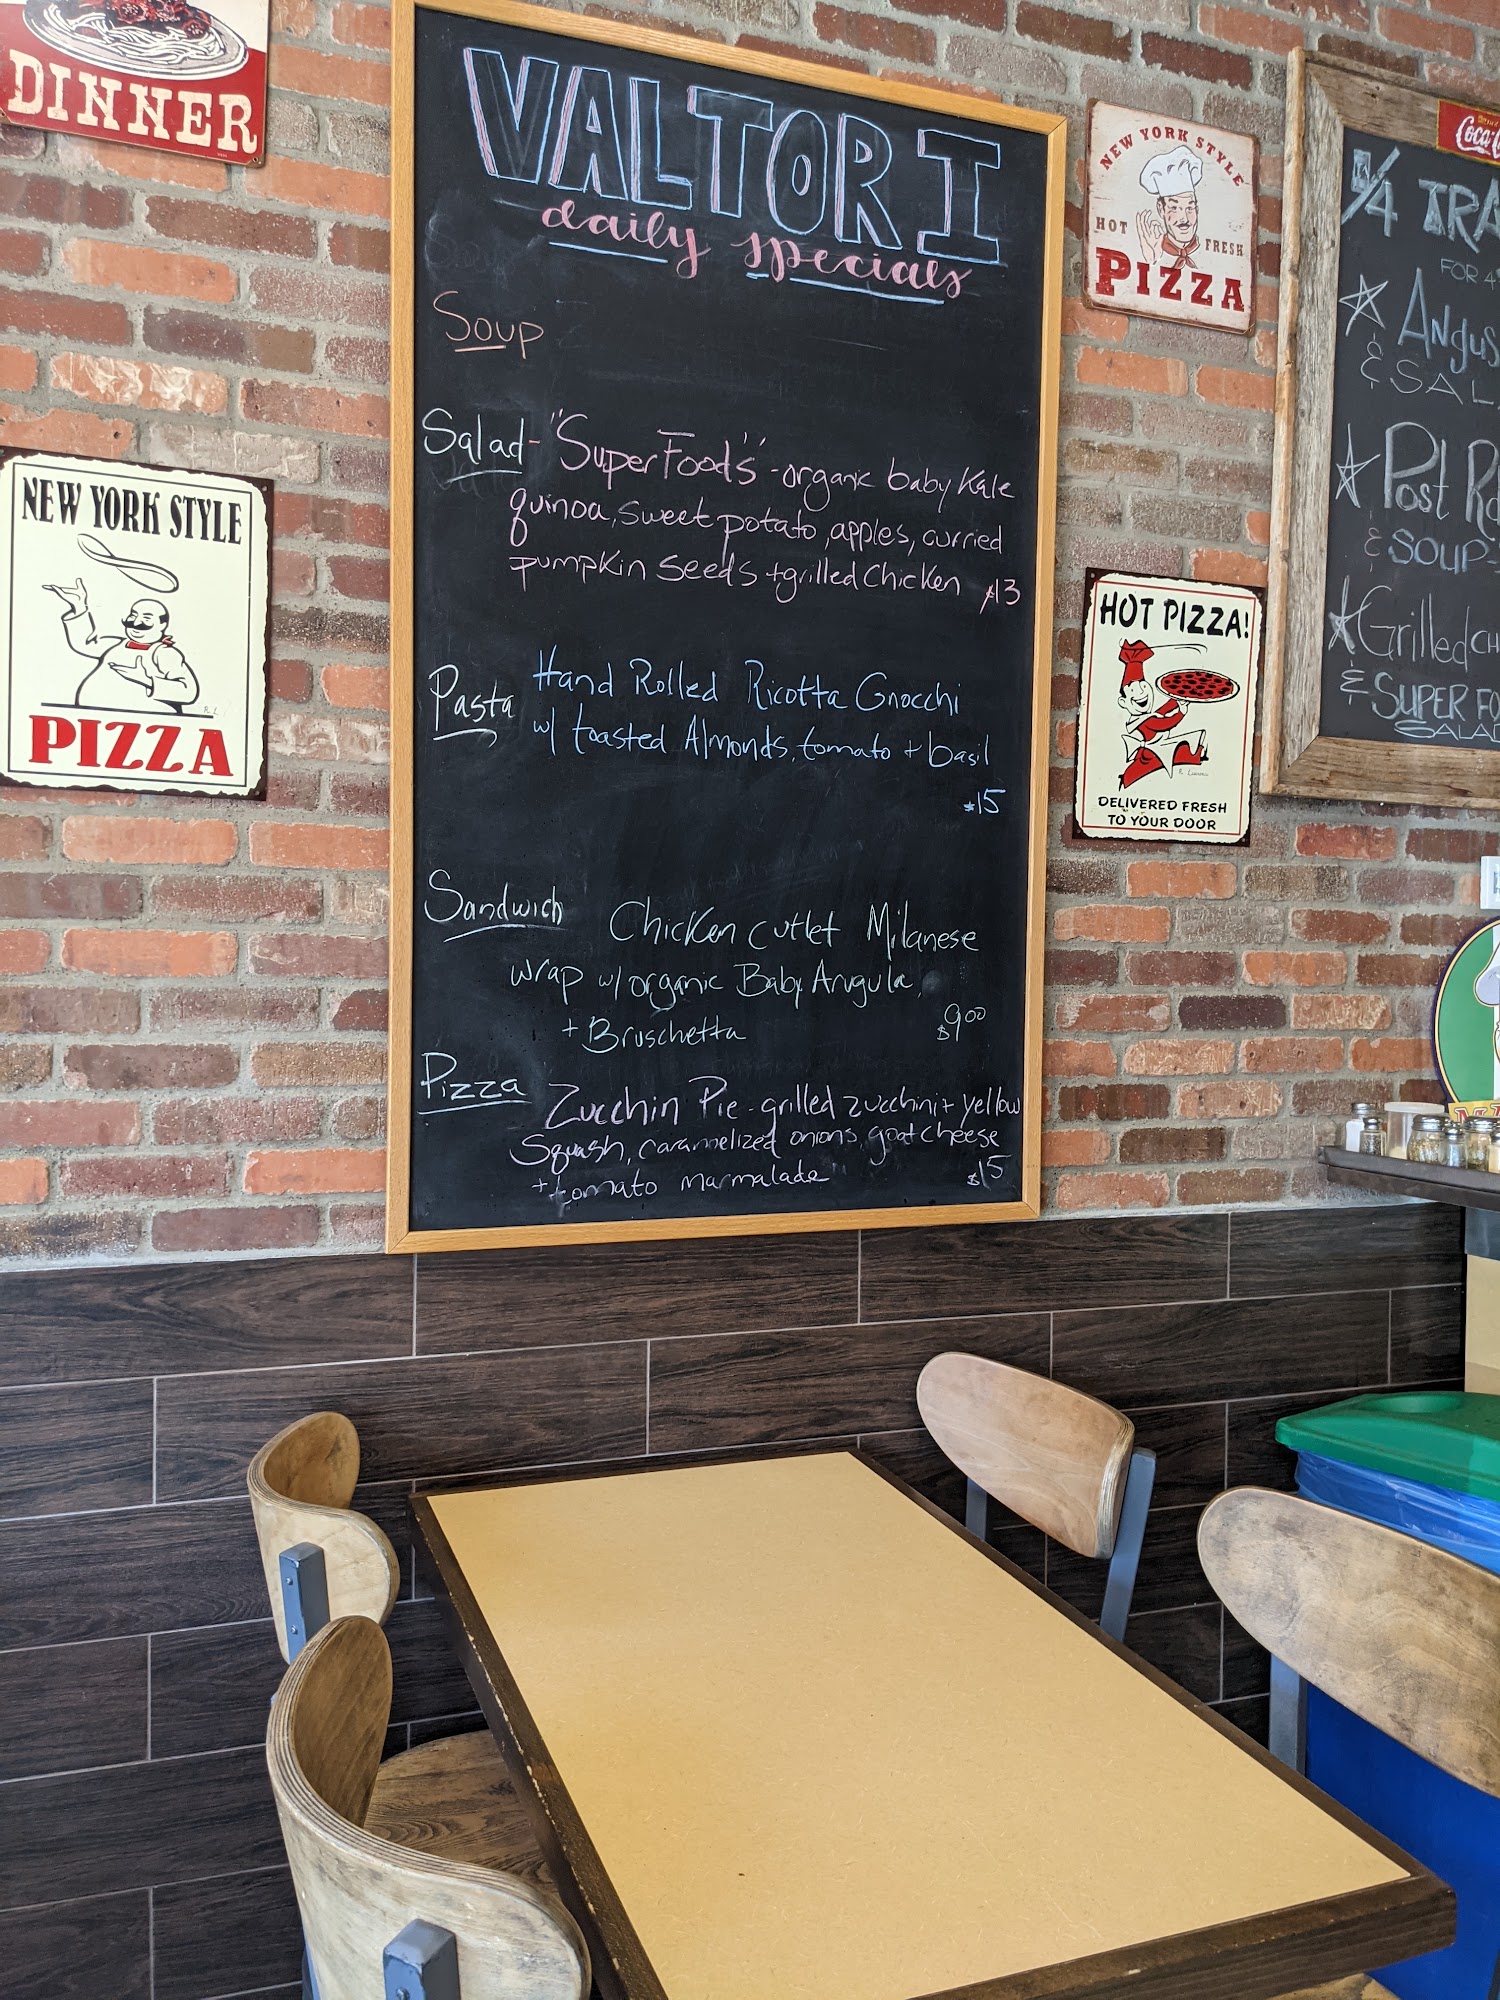 DINNER
NEW YORK STYLE
PIZZA
VALTORI
daily specials
Soup
Salad - "SuperFoods" - organic baby Kale
quinoa, sweet potato, apples, curried
pumpkin seeds + grilled Chicken $13
Pasta Hand Rolled Ricotta Gnocchi
w/ toasted Almonds, tomato + basil
$15
Sandwich Chicken cutlet Milanese
wrap w/ organic Baby Arugula,
+ Bruschetta $9.00
Pizza Zucchini Pie - grilled zucchini + yellow
Squash, caramelized onions, goat cheese
+ tomato marmalade $15
NEW YORK STYLE
HOT FRESH
PIZZA
HOT PIZZA!
DELIVERED FRESH
TO YOUR DOOR
Coca-C
1/4 TRA
FOR 4
Angus
& SAL
Post Ro
& SOUP-
Grilled CH
& SUPER FO
SALAD